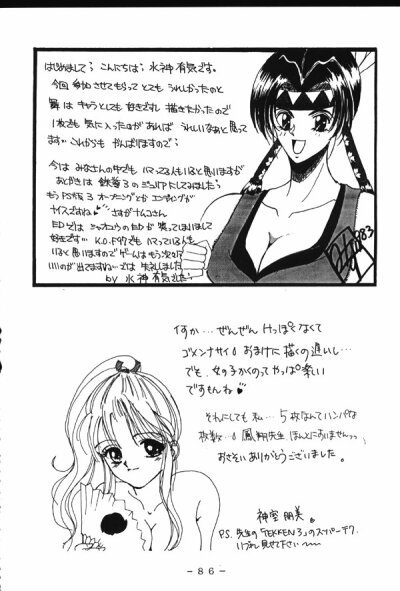 はじめまして、こんにちは、水神有気です。
今回参加させてもらってとてもうれしかったのと
舞はキャラとしても好きですし描きたかったので
1枚でも気に入ったのがあればうれしいなぁと思って
ます…これからもがんばりますので、
今はみなさんの中でもハマってる人もいると思いますが
あとがきは鉄拳3の
もうPS版3オープニングとかエンディングが
ナイスですね♥さすがナムコさん
EDでは のEDが笑ってしまいまして
好きです…K.O.F97でもハマっている人も
いると思いますのでゲームはもう次から次へ
いいのが出てますね…では失礼しました
by 水神有気でした
なんか…ぜんぜんHっぽくなくて
ゴメンナサイ。おまけに描くの遅いし…
でも、女の子かくのってやっぱ楽しい
ですもんね♥
それにしても私…5枚なんてハンパな
枚数…。鳳翔先生ほんとに
おさそいありがとうございました。
神室朋美
PS.先生の「TEKKEN3」のスーパーテク、
いつか見せて下さい〜
-86-